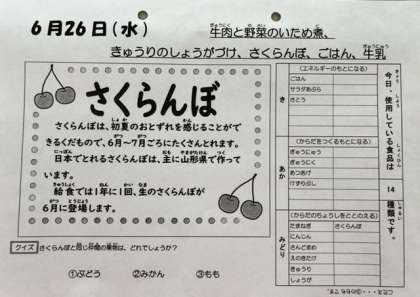 6月26日(水)
牛肉と野菜のいため煮、
きゅうりのしょうがづけ、さくらんぼ、ごはん、牛乳
さくらんぼ
さくらんぼは、初夏のおとずれを感じることがで
きるくだもので、6月～7月ごろにたくさんとれます。
日本でとれるさくらんぼは、主に山形県で作って
います。
給食では1年に1回、生のさくらんぼが
6月に登場します。
クイズ さくらんぼと同じ仲間の果物は、どれでしょうか?
①ぶどう ②みかん ③もも
今日、使用している食品は 14 種類です。
き
(エネルギーのもとになる)
ごはん
サラダあぶら
さとう
あか
(からだをつくるもとになる)
ぎゅうにゅう
ぎゅうにく
あつあげ
けずりぶし
みどり
(からだのちょうしをととのえる)
たまねぎ さくらんぼ
にんじん
さんどまめ
えのきたけ
きゅうり
しょうが